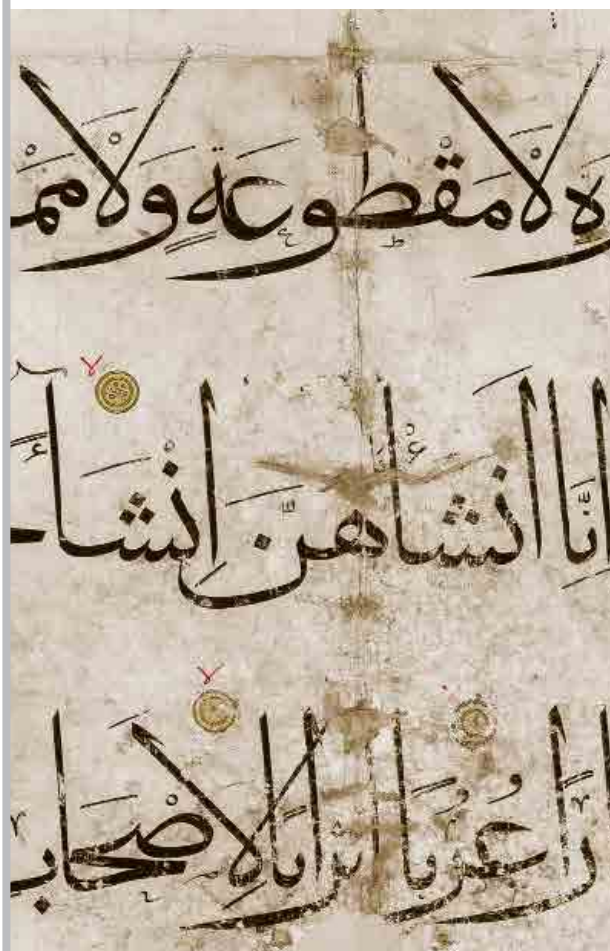 ةٍ لَا مَقْطُوعَةٍ وَلَا مَمْ
اِنَّا اَنْشَأْنَاهُنَّ اِنْشَاءً
رًا عُرُبًا اَتْرَابًا لِاَصْحَابِ